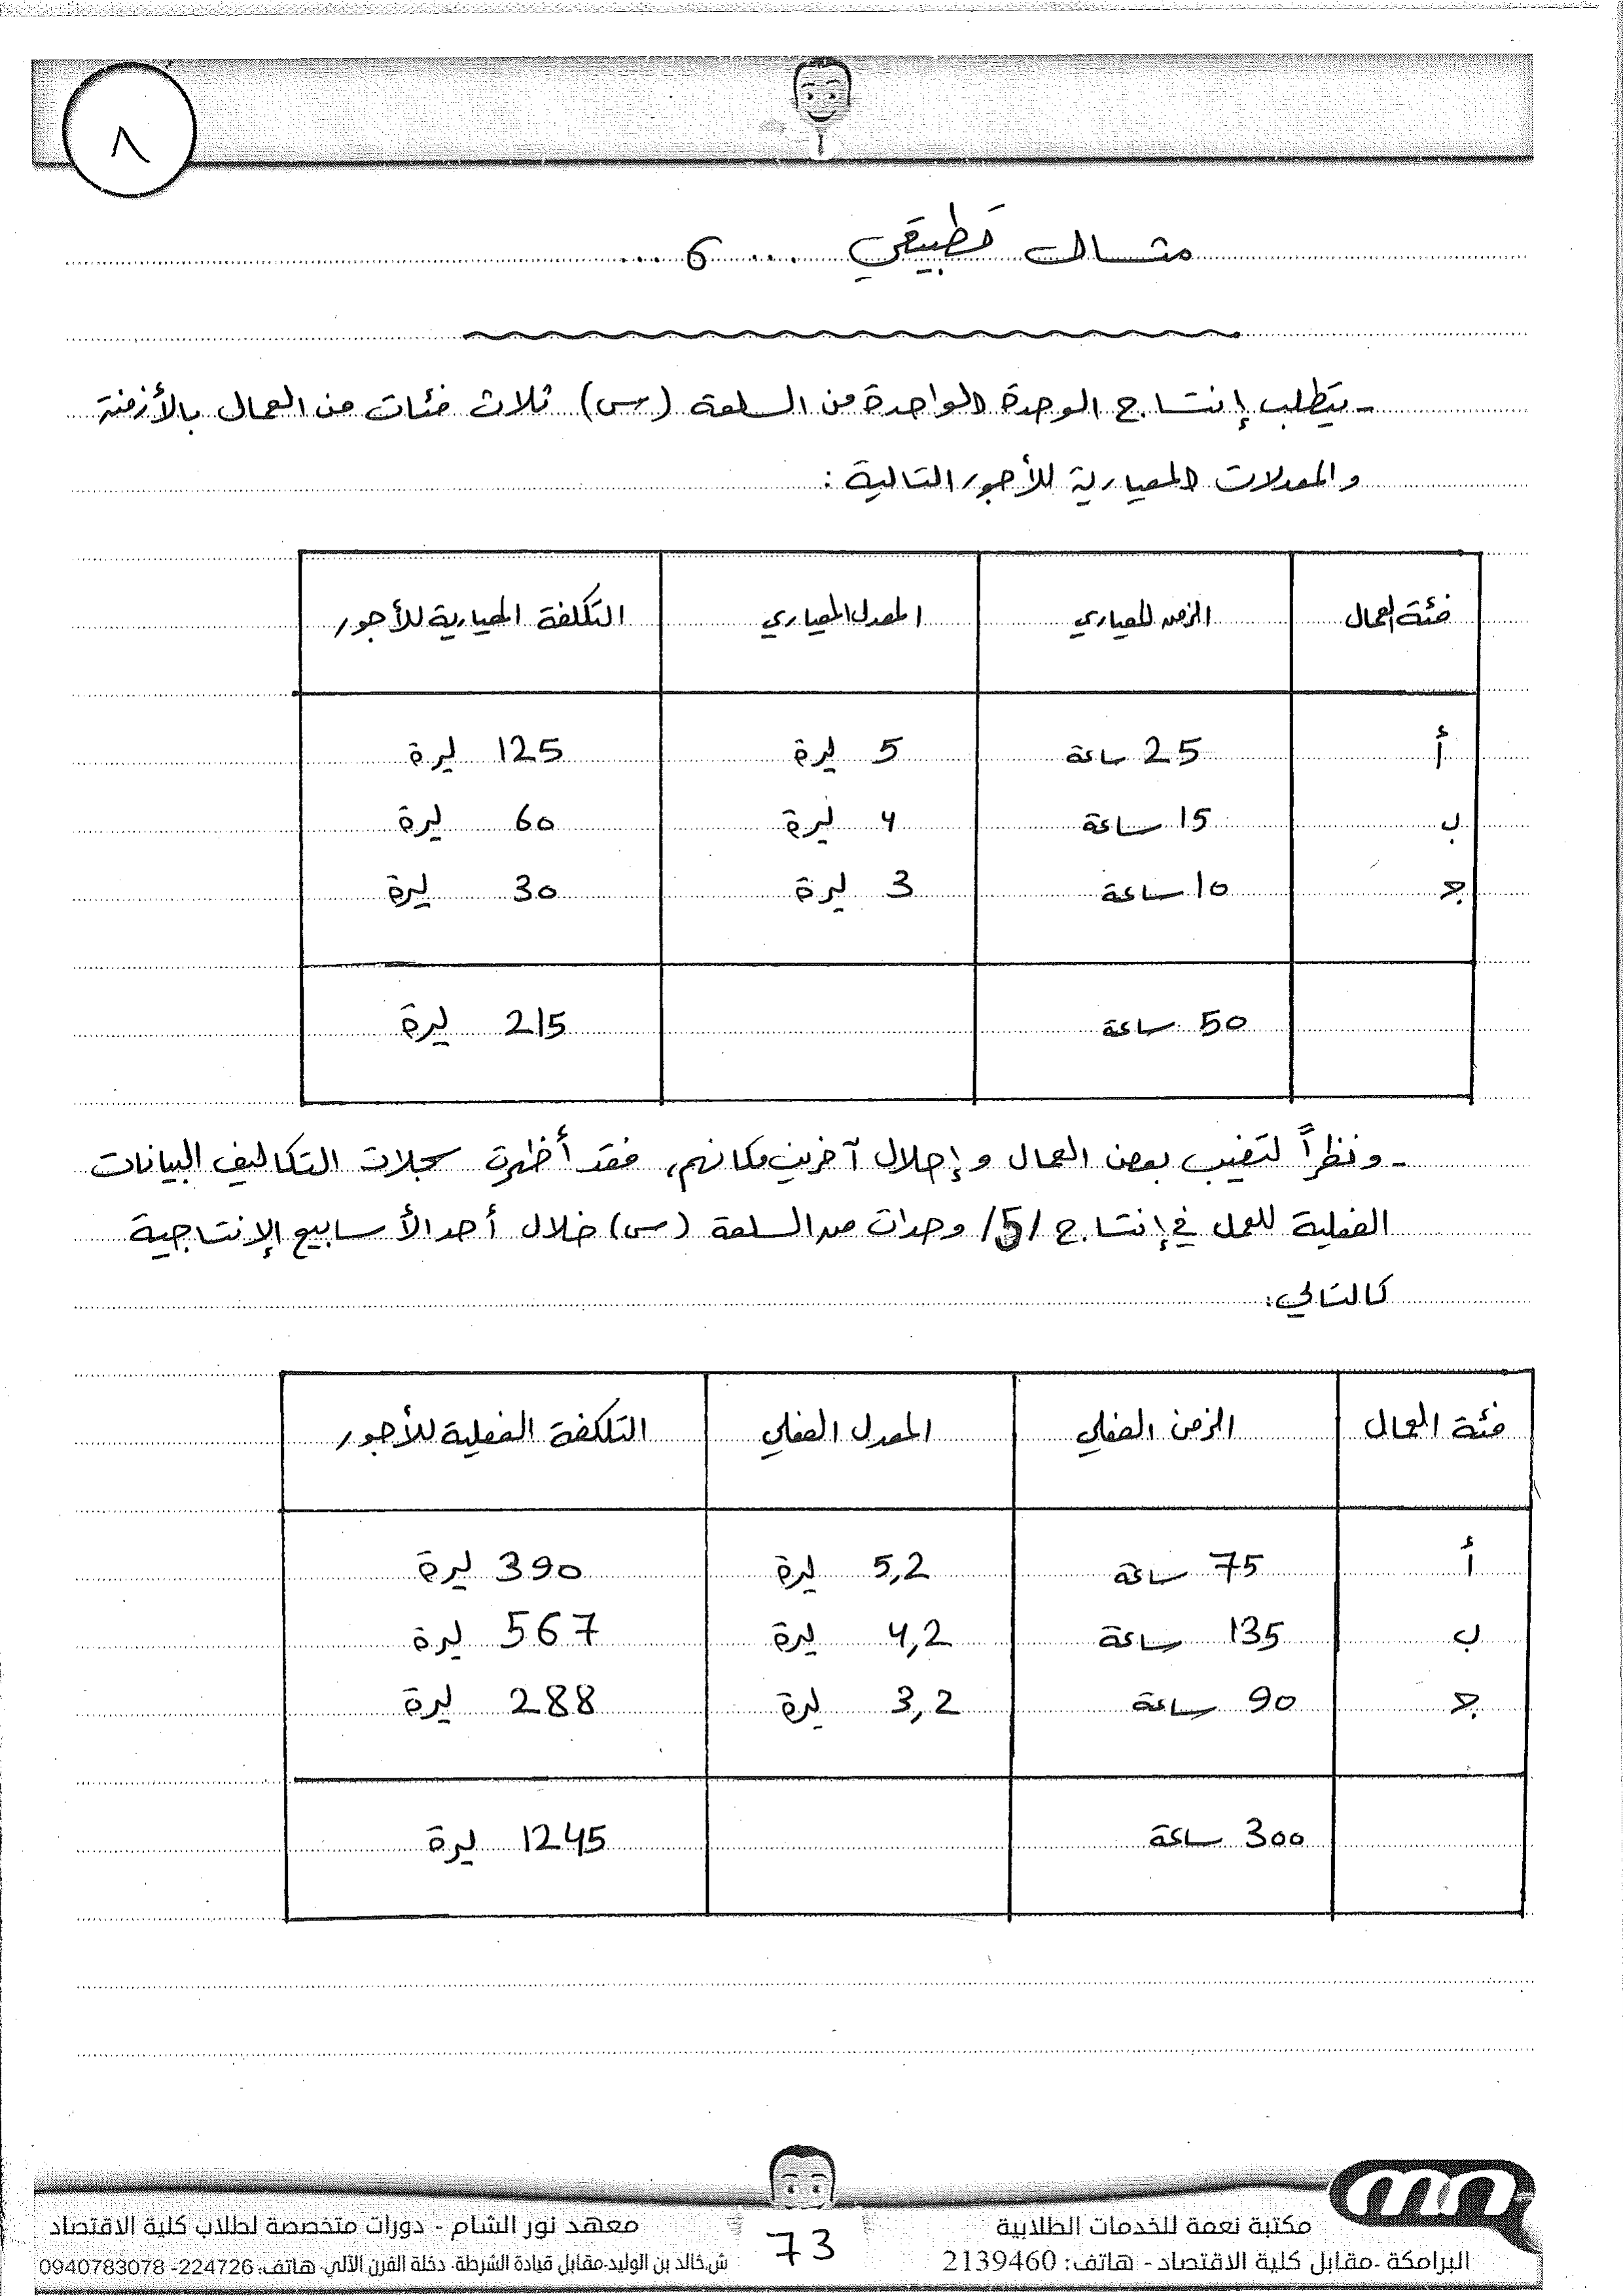 ٨
مثال تطبيقي ... 6 ...
- يتطلب إنتاج الوحدة الواحدة من السلعة (س) ثلاث فئات من العمال بالأزمنة
والمعدلات المعيارية للأجور التالية :
فئة العمال الزمن المعياري المعدل المعياري التكلفة المعيارية للأجور
أ 25 ساعة 5 ليرة 125 ليرة
ب 15 ساعة 4 ليرة 60 ليرة
ج 10 ساعة 3 ليرة 30 ليرة
50 ساعة 215 ليرة
- ونظراً لتغيب بعض العمال وإحلال آخرين مكانهم، فقد أظهرت سجلات التكاليف البيانات
الفعلية للعمل في إنتاج /5/ وحدات من السلعة (س) خلال أحد الأسابيع الإنتاجية
كالتالي:
فئة العمال الزمن الفعلي المعدل الفعلي التكلفة الفعلية للأجور
أ 75 ساعة 5,2 ليرة 390 ليرة
ب 135 ساعة 4,2 ليرة 567 ليرة
ج 90 ساعة 3,2 ليرة 288 ليرة
300 ساعة 1245 ليرة
مكتبة نعمة للخدمات الطلابية
البرامكة -مقابل كلية الاقتصاد - هاتف: 2139460
73
معهد نور الشام - دورات متخصصة لطلاب كلية الاقتصاد
ش.خالد بن الوليد-مقابل قيادة الشرطة- دخلة الفرن الآلي- هاتف: 224726- 0940783078